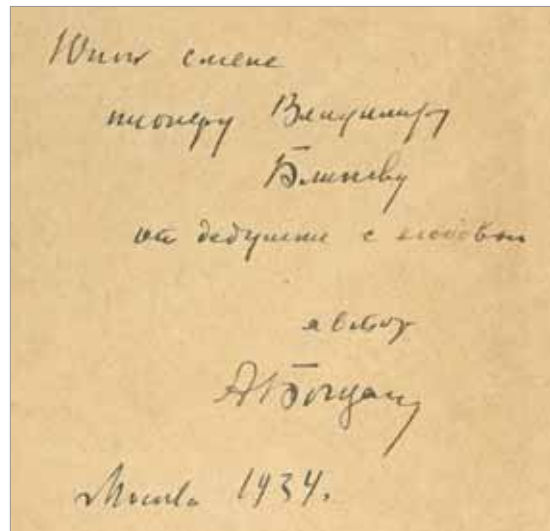 Юной смене
пионеру Владимиру
Блинову
от дедушки с любовью
автор
А Богдан
Москва 1934.